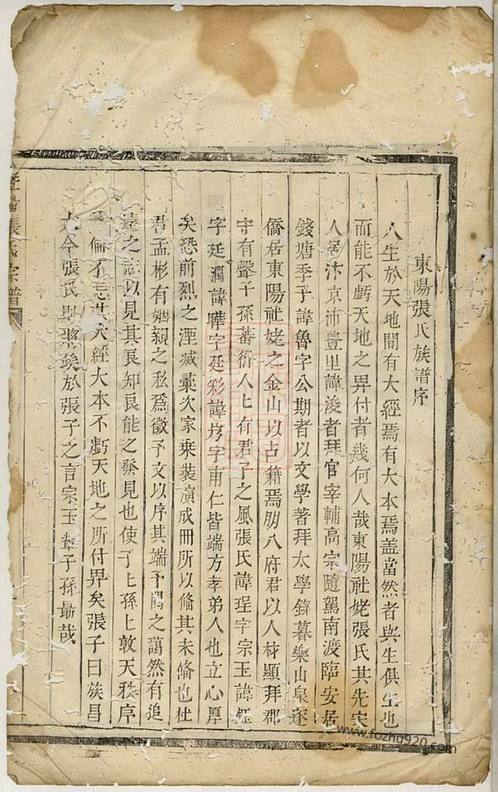 東陽張氏族譜序
人生於天地間有大經焉有大本焉蓋當然者與生俱生也
而能不虧天地之畀付者幾何人哉東陽社姥張氏其先宋
人居汴京沛豐里諱浚者拜官宰輔高宗隨駕南渡臨安居
錢塘季子諱魯字公期者以文學著拜太學錄暮樂山泉逐
僑居東陽社姥之金山以占籍焉朋八府君以人材顯拜郡
守有聲子孫蕃衍人上有君子之風張氏諱珵字宗玉諱
字廷潤諱曄字延彩諱字甫仁皆端方孝弟人也立心厚
矣恐前烈之湮滅彙次家乘裝演成冊所以脩其未脩也杜
君孟彬有姻之私爲徵予文以序其端予閱之藹然有追
遠之志以見其良知良能之發見也使子上孫上敦天秩序
倫不忘其大經大本不虧天地之所付畀矣張子曰族昌
大今張氏於張子之言宗玉輩子孫勗哉
張氏宗譜
www.fozhu920.com